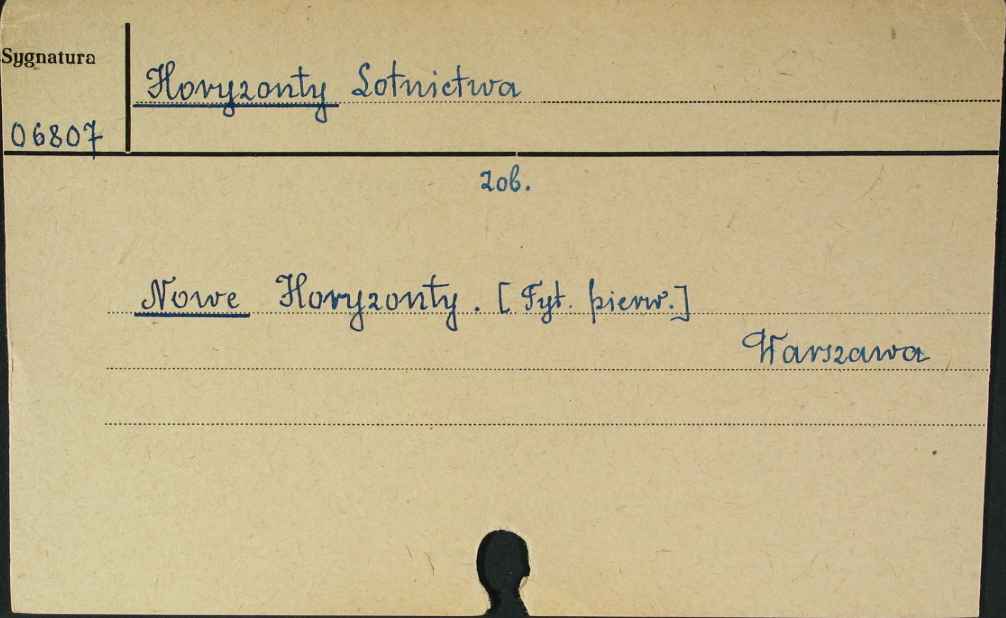 Sygnatura
Horyzonty Lotnictwa
06807
zob.
Nowe Horyzonty. [Tyt. pierw.]
Warszawa